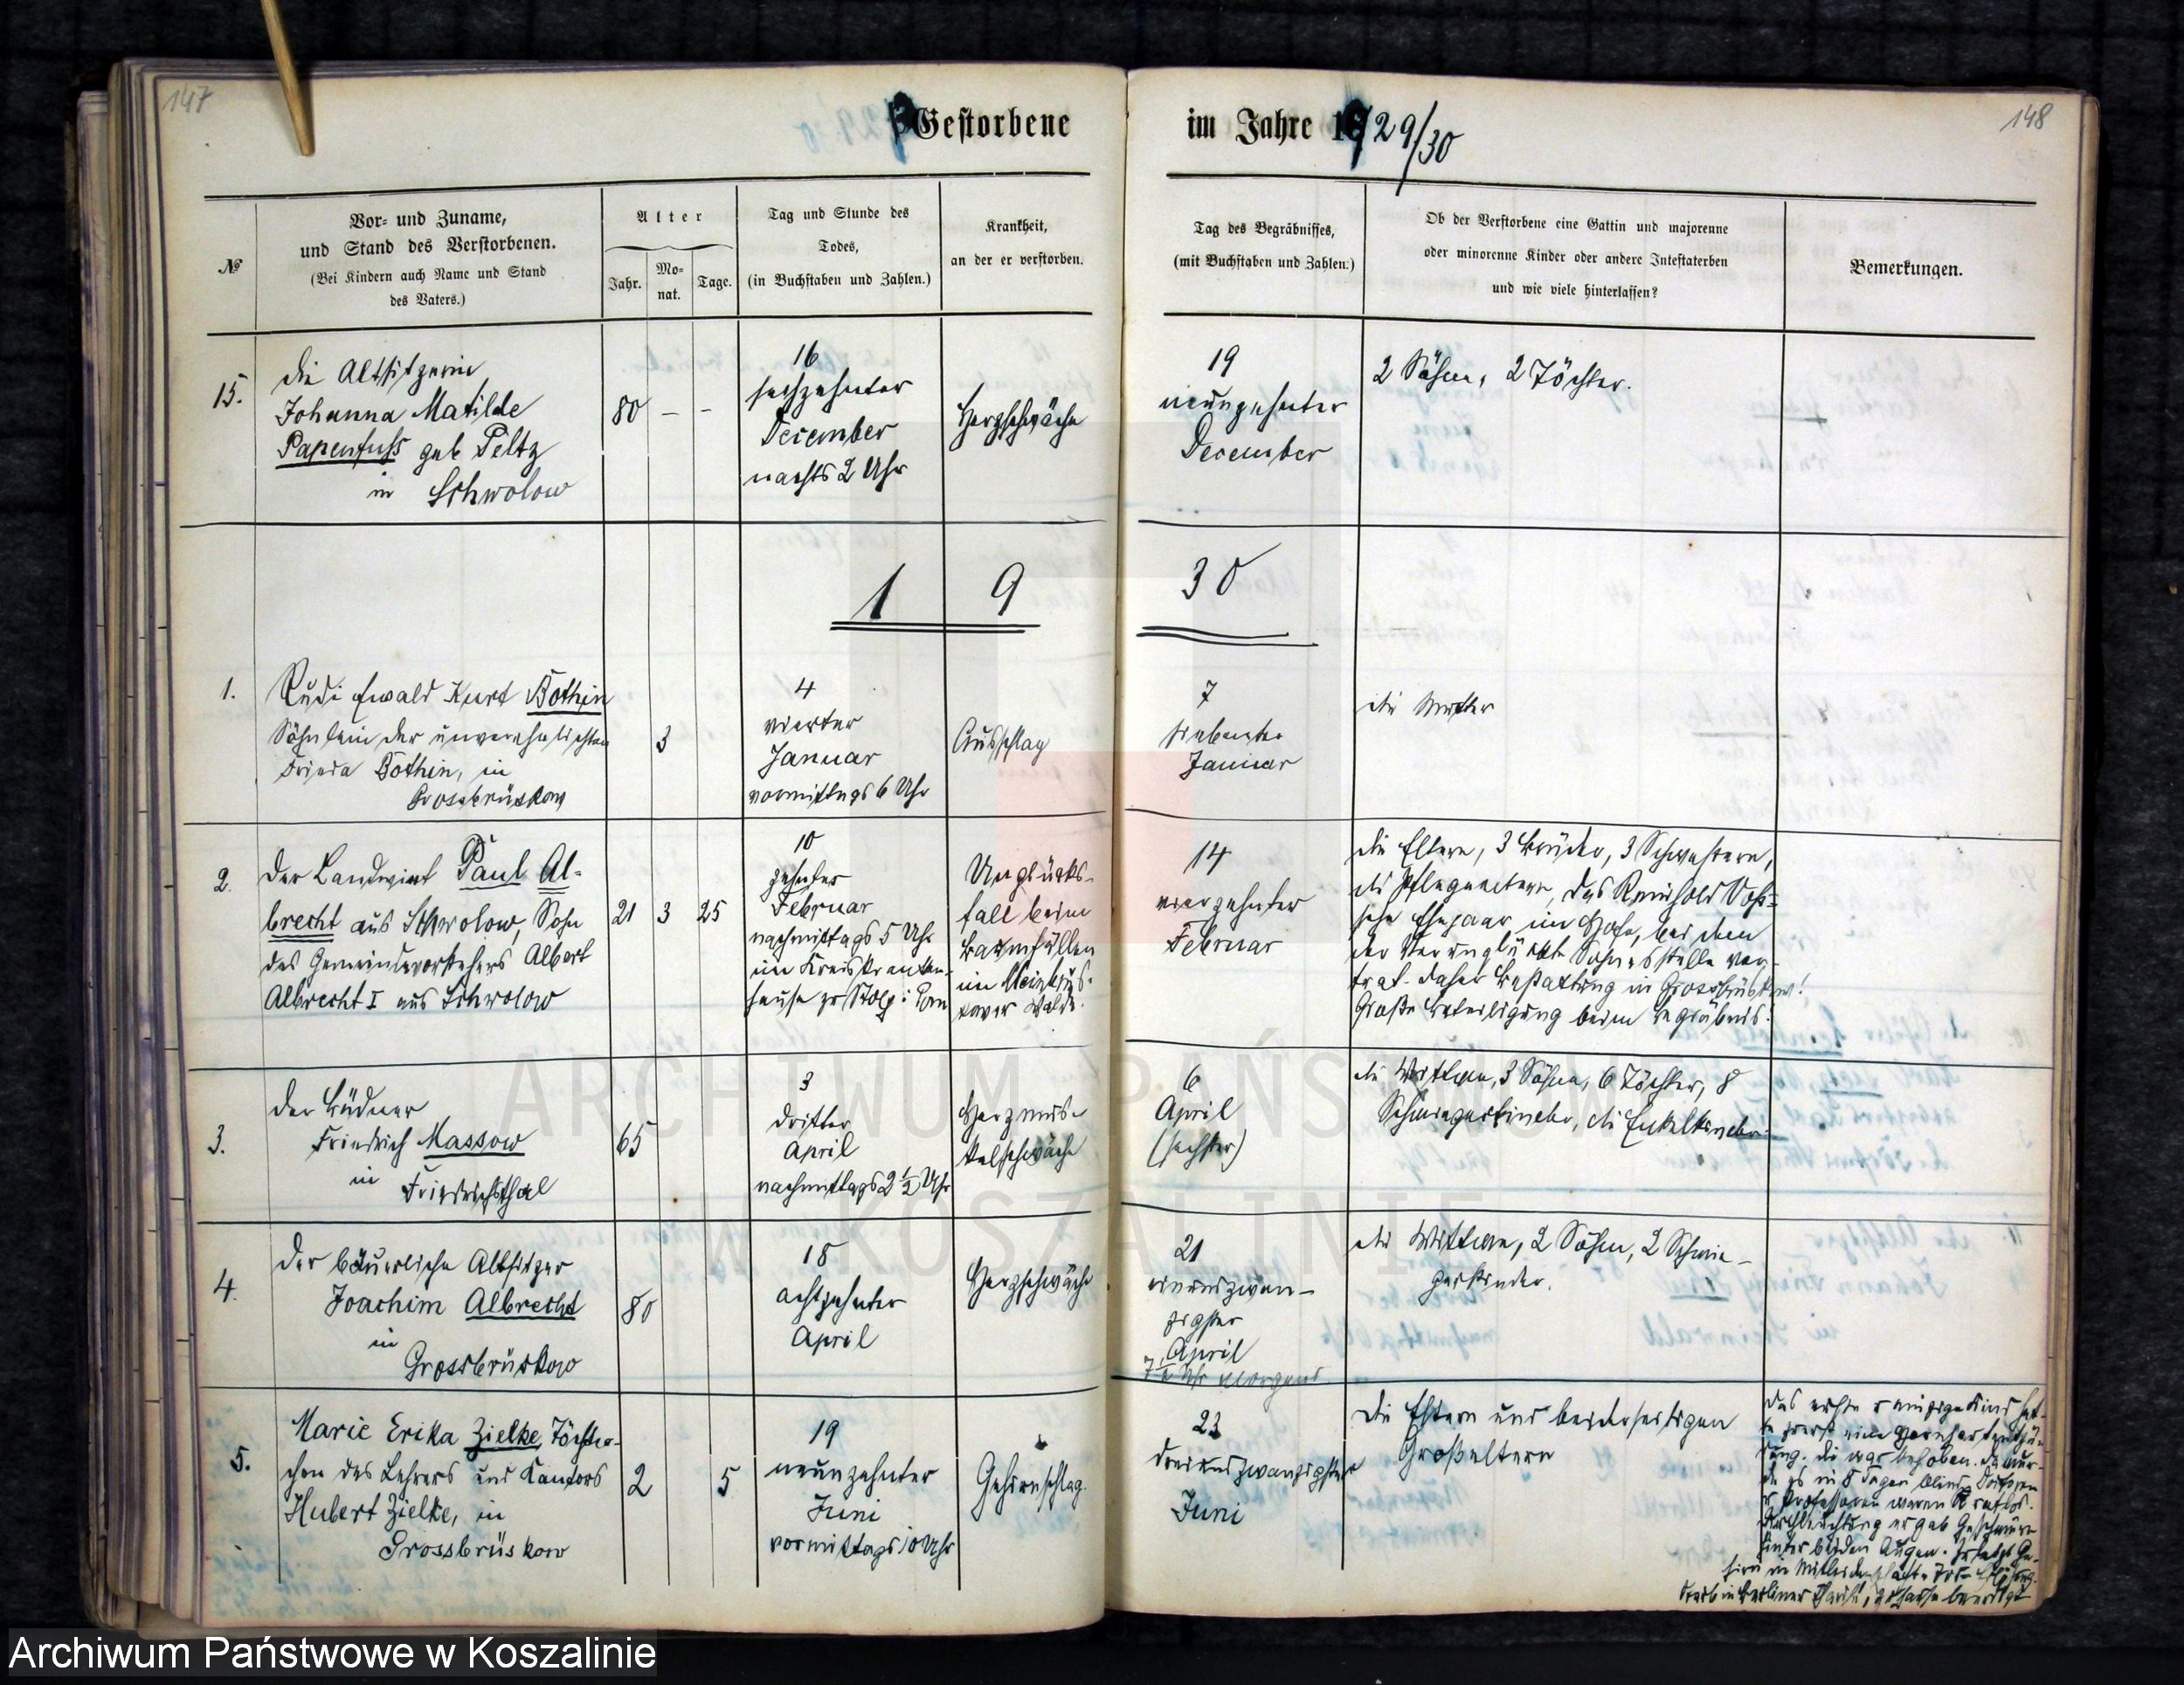 147
Gestorbene
im Jahre 1929/30
148
№
Vor- und Zuname,
und Stand des Verstorbenen.
(Bei Kindern auch Name und Stand
des Vaters.)
Alter
Jahr.
Mo-
nat.
Tage.
Tag und Stunde des
Todes,
(in Buchstaben und Zahlen.)
Krankheit,
an der er verstorben.
Tag des Begräbnisses,
(mit Buchstaben und Zahlen.)
Ob der Verstorbene eine Gattin und majorenne
oder minorenne Kinder oder andere Intestaterben
und wie viele hinterlassen?
Bemerkungen.
15.
die Altsitzerin
Johanna Matilde
Papenfuss geb Peltz
in Schwolow
80 – –
16
sechzehnter
December
nachts 2 Uhr
Herzschwäche
19
neunzehnter
December
2 Söhne, 2 Töchter.
19
30
1.
Rudi Ewald Kurt Bothin
Söhnlein der unverehelichten
Frieda Bothin, in
Grossbrüskow
3
4
vierter
Januar
vormittags 6 Uhr
Ausschlag
7
siebenter
Januar
die Mutter
2.
der Landwirt Paul Al-
brecht aus Schwolow, Sohn
des Gemeindevorstehers Albert
Albrecht I aus Schwolow
21 3 25
10
zehnter
Februar
nachmittags 5 Uhr
im Kreiskranken-
hause zu Stolp i Pom
Unglücks-
fall beim
Baumfällen
im
Walde.
14
vierzehnter
Februar
die Eltern, 3 Brüder, 3 Schwestern,
die Pflegeeltern, das Reinhold Voß-
sche Ehepaar im Hofe, bei dem
der Verunglückte Sohnesstelle ver-
trat. daher Bestattung in Grossbrüskow!
Große Beteiligung beim Begräbnis.
3.
der Büdner
Friedrich Massow
in Friedrichsthal
65
3
dritter
April
nachmittags 2 1/2 Uhr
Herzmus-
kelschwäche
6
April
(sechster)
die Wittwe, 3 Söhne, 6 Töchter, 8
Schwiegerkinder, die Enkelkinder
4.
der bäuerliche Altsitzer
Joachim Albrecht
in
Grossbrüskow
80
18
achtzehnter
April
Herzschwäche
21
einundzwan-
zigster
April
Uhr morgens
die Wittwe, 2 Söhne, 2 Schwie-
gerkinder.
5.
Marie Erika Zielke, Töchter-
chen des Lehrers und Kantors
Hubert Zielke, in
Grossbrüskow
2 5
19
neunzehnter
Juni
vormittags 10 Uhr
Gehirnschlag.
23
dreiundzwanzigster
Juni
Die Eltern und beiderseitigen
Großeltern
das erste einzige Kind hat-
te zuerst eine
dung. die war behoben. da wur-
de es in 8 Tagen blind. Doktoren
u Professoren waren ratlos.
Durchleuchtung ergab Geschwüre
hinter beiden Augen.
Starb in Berliner Charité, zu Hause beerdigt
ARCHIWUM PAŃSTWOWE
W KOSZALINIE
Archiwum Państwowe w Koszalinie